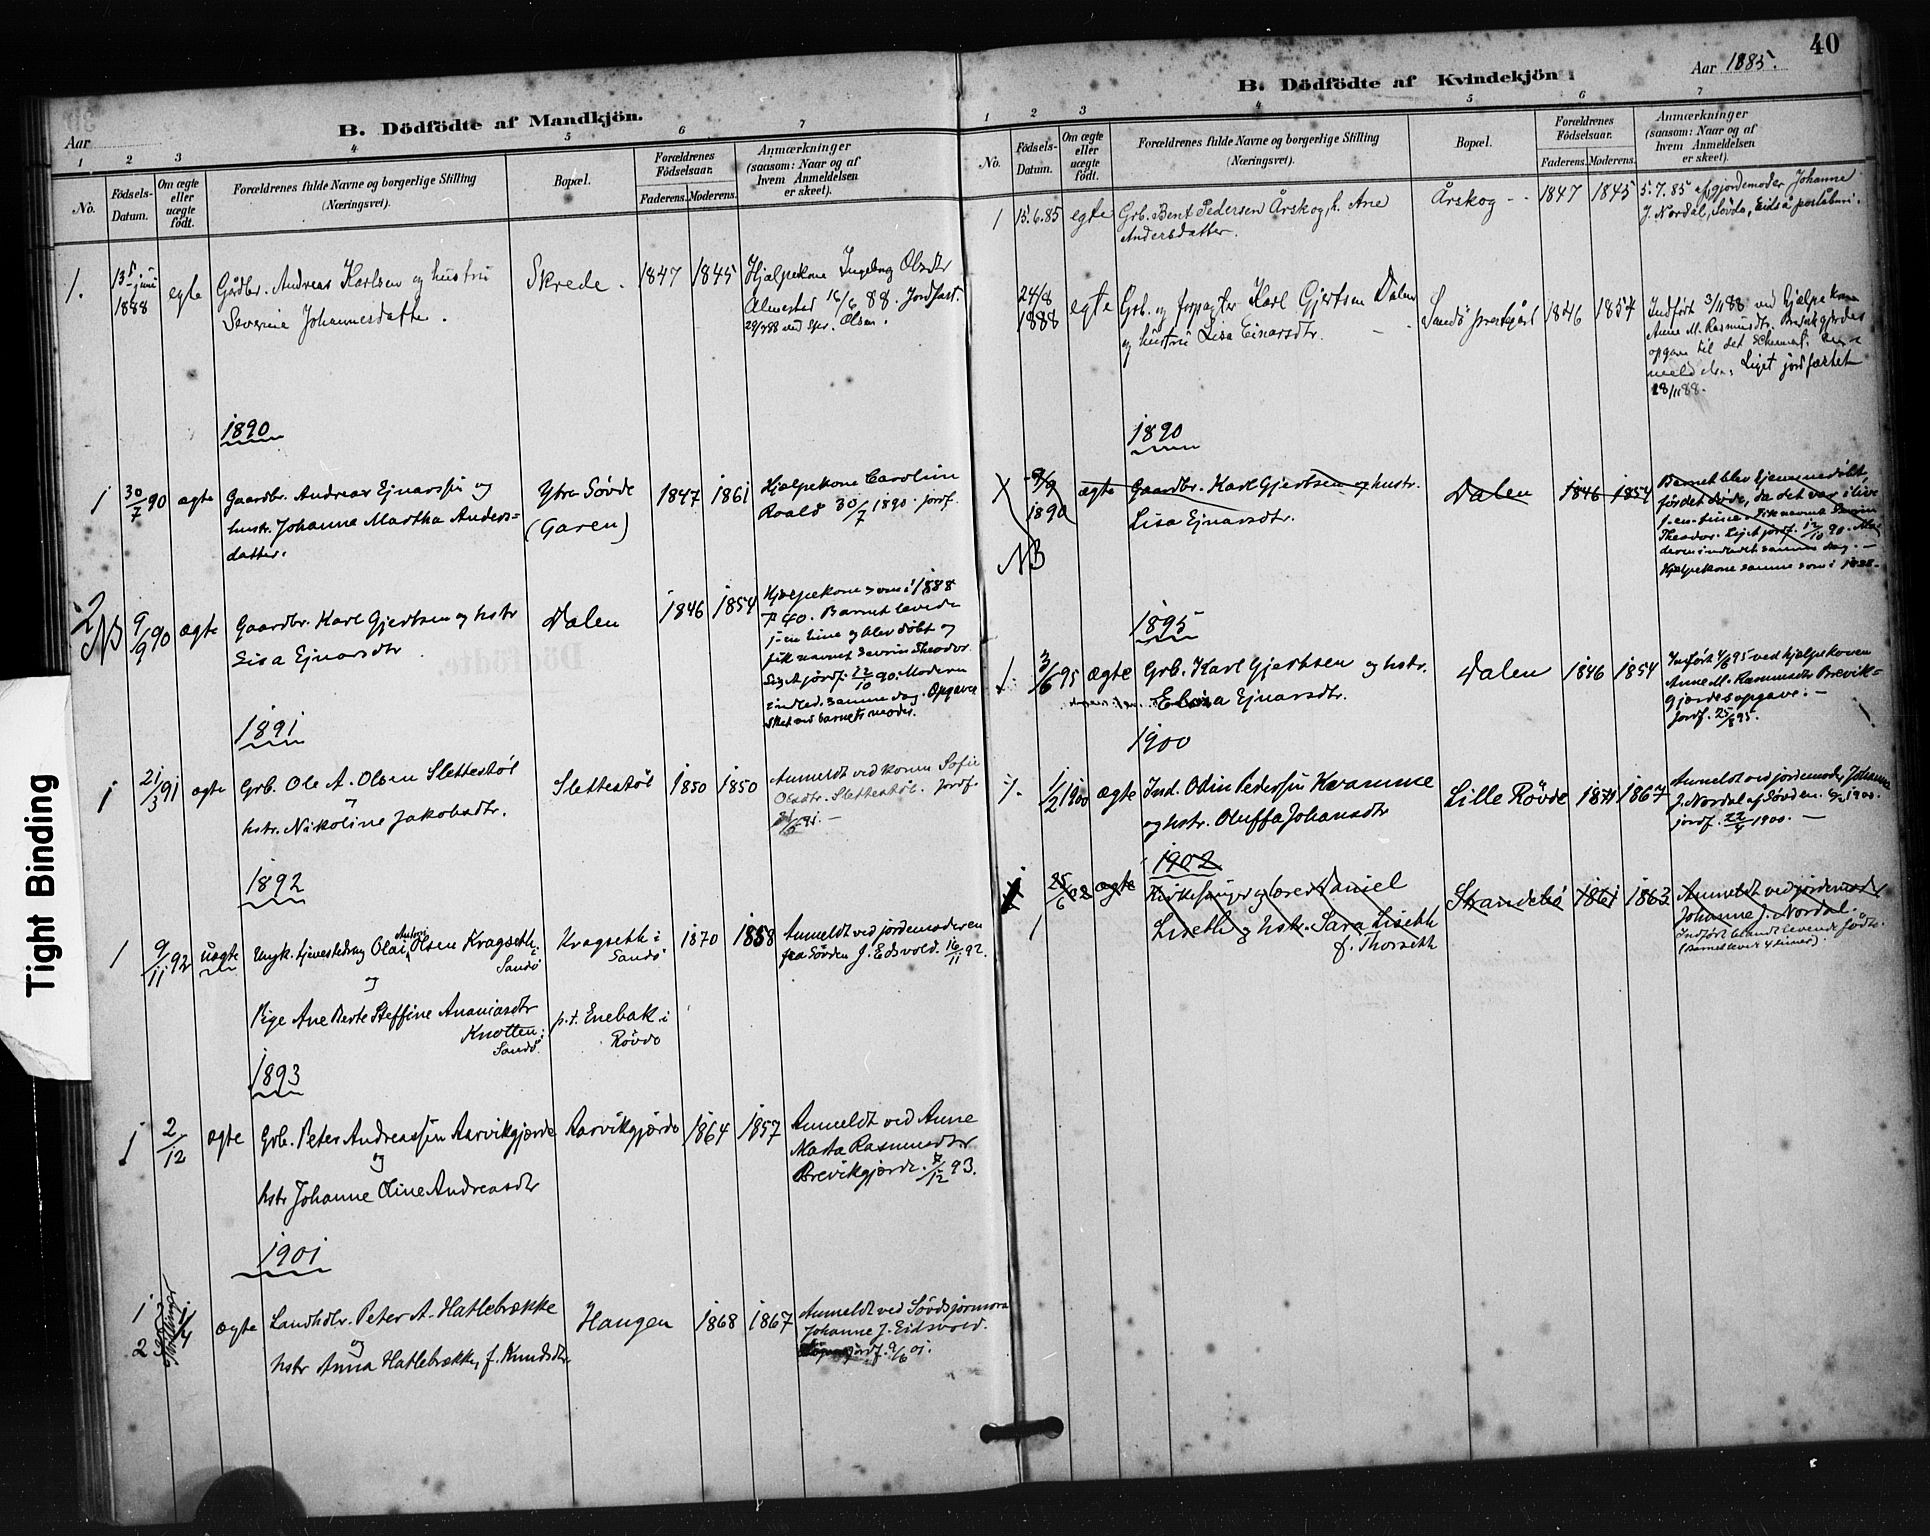 B. Dödfödte af Mandkjön.
Aar
1 2 3 4 5 6 7
No.
Födsels-
Datum.
Om ægte
eller
uægte
födt.
Forældrenes fulde Navne og borgerlige Stilling
(Næringsvei).
Bopæl.
Forældrenes
Födselsaar.
Faderens. Moderens.
Anmærkninger
(saasom: Naar og af
hvem Anmeldelsen
er skeet).
1. juni 1888 egte Gårdbr. Andreas Karlsen og hustru
Severine Johannesdatter.
Skrede. 1847 1845
Hjælpekone Ingeborg Olsdtr
Almestad 16/6 88. Jordfæst.
29/7 88 ved Olsen.
1890
1 30/7 90 ægte Gaardbr. Andreas Ejnarssøn og
hustr. Johanne Martha Anders-
datter.
Ytre Søvde
(Garen)
1847 1861
Hjælpekone Caroline
Roald 30/7 1890. jordf.
2 NB 9/9 90 ægte Gaardbr. Karl Gjertsen og hstr
Lisa Ejnarsdtr
Dalen 1846 1854
Hjælpekone som i 1888
40. Barnet levede
j-en time og blev døbt og
fik navnet Severin Theodor.
Liget jordf. 12/10 90. Moderen
indled. samme dag. Opgave
sket ved barnets moder.
1891
1 21/3 91 ægte Grb. Ole A. Olsen Slettestøl
og
hstr. Nikoline Jakobsdtr.
Slettestøl 1850 1850
Anmeldt ved konen Sofie
Olsdtr. Slettestøl. jordf.
1892
1 9/11 92 uægte Ungk. Olai Olsen Kragseth
Sandø
og
Pige Ane Berte Steffine Ananiasdtr
Knotten
Sandø.
Kragseth i
Sandø
p.t. Enebak i
Røvde
1870 1858
Anmeldt ved jordemoderen
fra Søvden J. Eidsvold. 16/11 92.
1893
1 2/12 ægte Grb. Peter Andreassen Aarvikgjærde
og
hstr Johanne Oline Andreasdtr
Aarvikgjærde 1864 1857
Anmeldt ved Anne
Marta Rasmusdtr
Brevikgjærde. 7/12 93.
1901
1
2 Tvillinger 1/4 ægte Landhdlr. Peter A. Hatlebrække
og
hstr Anna Hatlebrække, f. Knudsdtr.
Haugen 1868 1867
Anmeldt ved Søvdsjormora
Johanne J. Eidsvold.
jordf. 9/6 01.
40
B. Dödfödte af Kvindekjön.
Aar 1885.
1 2 3 4 5 6 7
No.
Födsels-
Datum.
Om ægte
eller
uægte
födt.
Forældrenes fulde Navne og borgerlige Stilling
(Næringsvei).
Bopæl.
Forældrenes
Födselsaar.
Faderens. Moderens.
Anmærkninger
(saasom: Naar og af
hvem Anmeldelsen
er skeet).
1 15.6.85 egte Grb. Bent Pedersen Årskog, h. Ane
Andersdatter.
Årskog 1847 1845
5.7.85 af gjordemoder Johanne
J. Nordal, Søvde, Eidså poståbneri.
24/8
1888 egte Grb. og forpagter Karl Gjertsen Dalen
og hustru Lisa Einarsdtr.
Sandø prestgård 1846 1854
Indført 3/11 88 ved Hjælpekone
Anne M. Rasmusdtr. Brevikgjerdes
opgave til det
Liget jordfæstet
18/11 88.
1890
1 9/9
1890
NB
ægte Gaardbr. Karl Gjertsen og hustr.
Lisa Ejnarsdtr.
Dalen 1846 1854
Barnet blev hjemmedøbt,
før det døde, da det var i live
j-en time. Fik navnet Severin
Theodor. Liget jordf. 12/10 90. Mo-
deren indledt samme dag. —
Hjælpekone samme som i 1888.
1895
1. 3/6 95 ægte Grb. Karl Gjertsen og hstr.
Elisa Ejnarsdtr.
Dalen 1846 1854
Indført 4/6 95 ved hjelpekonen
Anne M. Rasmusdtr Brevik-
gjærdes opgave. —
jordf. 25/8 95.
1900
1. 1/2 1900 ægte Ind. Odin Pederssøn Kvamme
og hstr. Oluffa Johansdtr
Lille Røvde 1871 1867
Anmeldt ved jordemoder Johanne
J. Nordal af Søvden. 1900.
jordf. 22/4 1900. —
1902
1 25/6 02 ægte Kirkesanger og lærer Daniel
Liseth og hstr. Sara Liseth
f. Thorseth
Strandebø 1861 1863
Anmeldt ved jordemoder
Johanne J. Nordal.
Indført blandt levende fødte.
(Barnet levet 4 timer).
Tight Binding